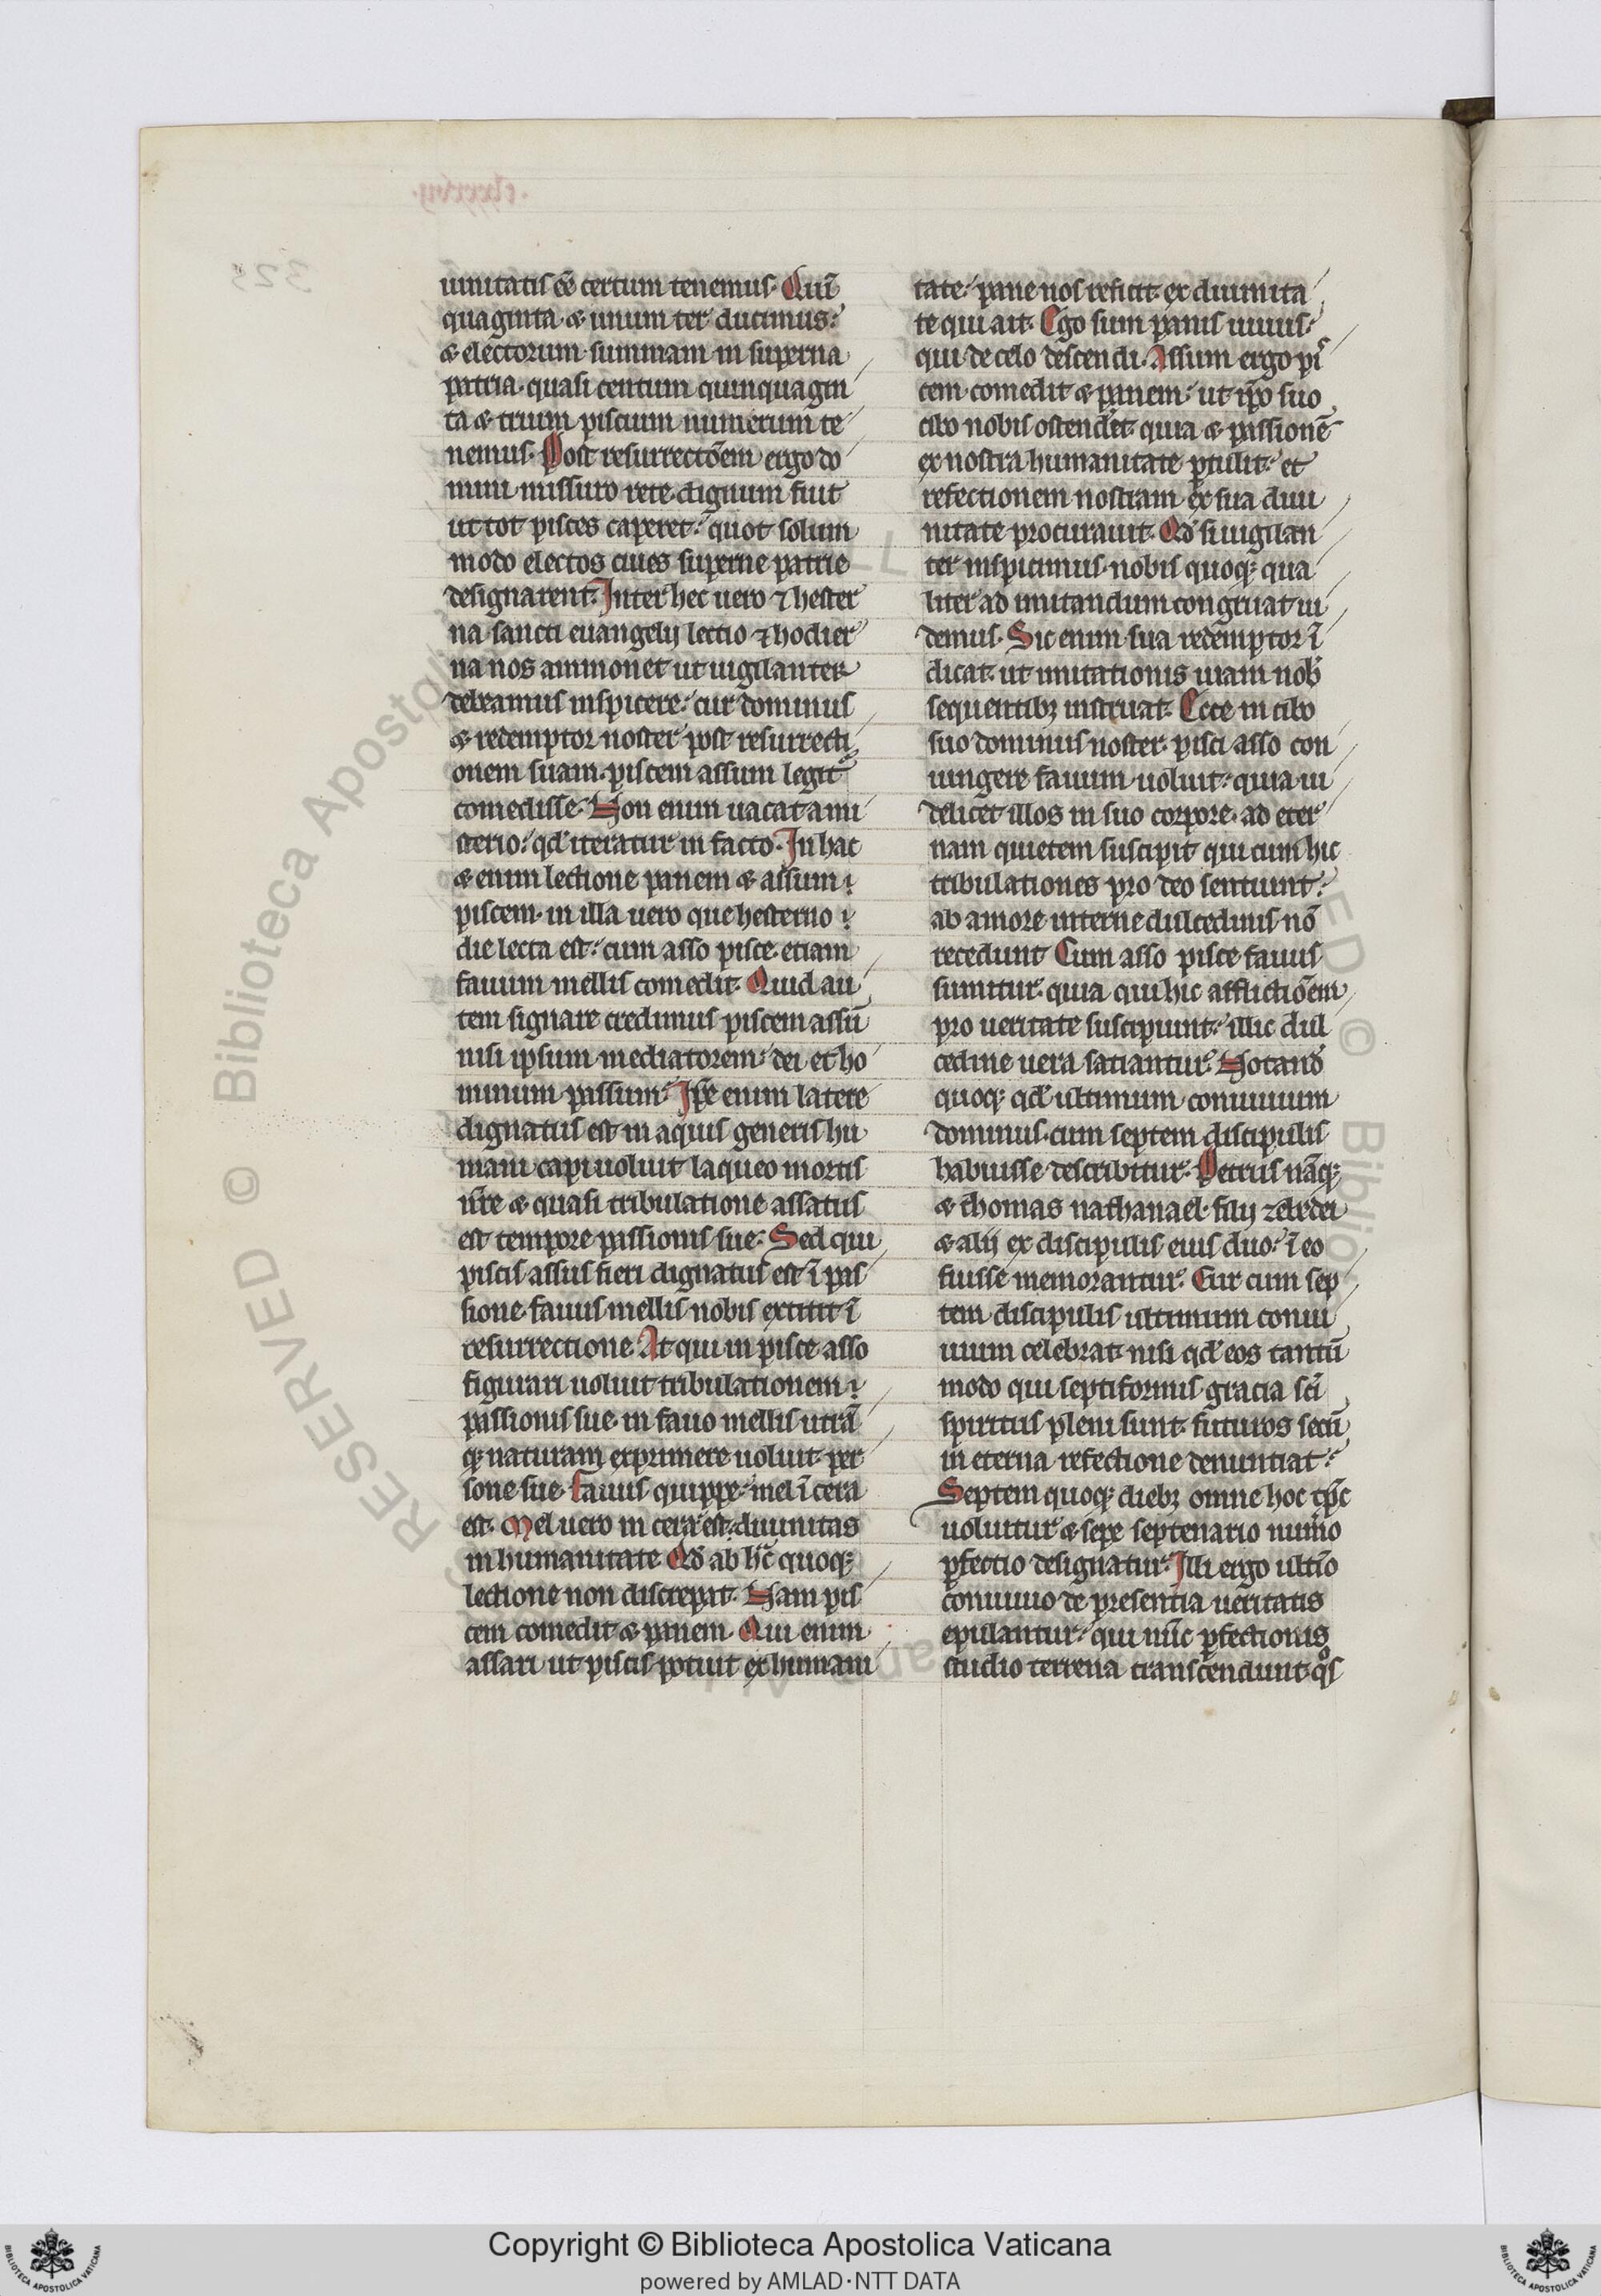 uinitatis eē certum tenemus. Quī
quaginta & unum ter ducimus:
& electorum summam in superna
patria quasi centum quinquagin
ta & trium piscium numerum te
nemus. Post resurrectōem ergo do
mini missuro rete dignum fuit
ut tot pisces caperet: quot solum
modo electos ciues superne patrie
designarent. Inter hec uero ⁊ hester
na sancti euangelij lectio ⁊ hodier
na nos ammonet ut uigilanter
debeamus inspicere: cur dominus
& redemptor noster post resurrecti
onem suam piscem assum legit᷑
comedisse. Non enim uacat a mi
sterio: qd̓ iteratur in facto. In hac
& enim lectione panem & assum
piscem. in illa uero que hesterno
die lecta est: cum asso pisce etiam
fauum mellis comedit. Quid au
tem signare credimus piscem assū
nisi ipsum mediatorem dei et ho
minum passum. Ip̄e enim latere
dignatus est in aquis generis hu
mani capi uoluit laqueo mortis
nr̄e & quasi tribulatione assatus
est tempore passionis sue. Sed qui
piscis assus fieri dignatus est ī pas
sione fauus mellis nobis extitit ī
resurrectione. At qui in pisce asso
figurari uoluit tribulationem
passionis sue in fauo mellis utrā
q; naturam exprimere uoluit per
sone sue. Fauus quippe mel ī cera
est. Mel uero in cera est: diuinitas
in humanitate. Qd̓ ab hͨ quoq;
lectione non discrepat. Nam pis
cem comedit & panem. Qui enim
assari ut piscis potuit ex humani
tate: pane nos reficit ex diuinita
te qui ait. Ego sum panis uiuus:
qui de celo descendi. Assum ergo pis
cem comedit & panem: ut ip̄o suo
cibo nobis ostender̄et quia & passionē
ex nostra humanitate ꝑtulit: et
refectionem nostram ex sua diui
nitate procurauit. Qd̓ si uigilan
ter inspicimus nobis quoq; qua
liter ad imitandum congruat ui
demus. Sic enim sua redemptor ī
dicat ut imitationis uiam nob̓
sequentibꝫ instruat. Ecce in cibo
suo dominus noster pisci asso con
iungere fauum uoluit: quia ui
delicet illos in suo corpore ad eter
nam quietem suscipit qui cum hic
tribulationes pro deo sentiunt:
ab amore interne dulcedinis nō
recedunt. Cum asso pisce fauus
sumitur. quia qui hic afflictiōem
pro ueritate suscipiunt: illic dul
cedine uera satiantur. Notand̓
quoq; qd̓ ultimum conuiuium
dominus cum septem discipulis
habuisse describitur. Petrus nāq;
& thomas nathanael. filij zebedei
& alij ex discipulis eius duo: ī eo
fuisse memorantur. Cur cum sep
tem discipulis ultimum conui
uium celebrat nisi qd̓ eos tantū
modo qui septiformis gracia sc̄i
spiritus pleni sunt futuros secū
in eterna refectione denuntiat:
Septem quoq; diebꝫ omne hoc tp̄c
uoluitur & sepe septenario num̄o
ꝑfectio designatur. Illi ergo ultīo
conuiuio de presentia ueritatis
epulantur: qui nūc ꝑfectionis
studio terrena transcendunt qͦs
RESERVED © Biblioteca Apostolica
Copyright © Biblioteca Apostolica Vaticana
powered by AMLAD·NTT DATA